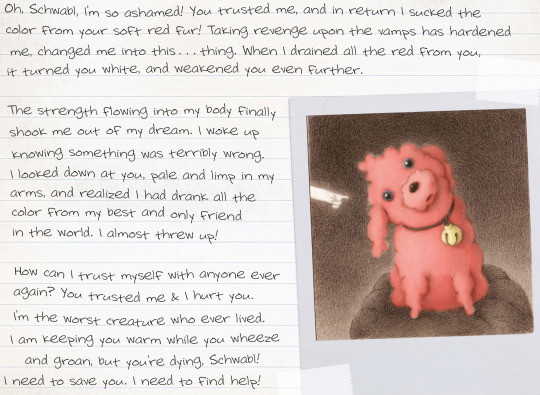 Oh, Schwabl, I'm so ashamed! You trusted me, and in return I sucked the
color from your soft red fur! Taking revenge upon the vamps has hardened
me, changed me into this...thing. When I drained all the red from you,
it turned you white, and weakened you even further.
The strength flowing into my body finally
shook me out of my dream. I woke up
knowing something was terribly wrong.
I looked down at you, pale and limp in my
arms, and realized I had drank all the
color from my best and only friend
in the world. I almost threw up!
How can I trust myself with anyone ever
again? You trusted me & I hurt you.
I'm the worst creature who ever lived.
I am keeping you warm while you wheeze
and groan, but you're dying, Schwabl!
I need to save you. I need to find help!